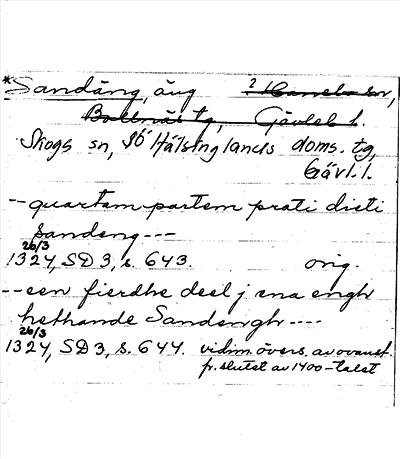 *Sandäng, äng ² Hanebo sn,
Bollnäs tg, Gävleb l.
Skogs sn, Sö Hälsinglands doms. tg,
Gävl. l.
-- quartam partem prati dicti
Sandeng ---
26/3
1324, SD 3, s. 643. orig.
-- een fierdhe deel j ena engh
hethande Sandengh ----
26/3
1324, SD 3, s. 644. vidim. övers. av ovanst.
fr. slutet av 1400-talet